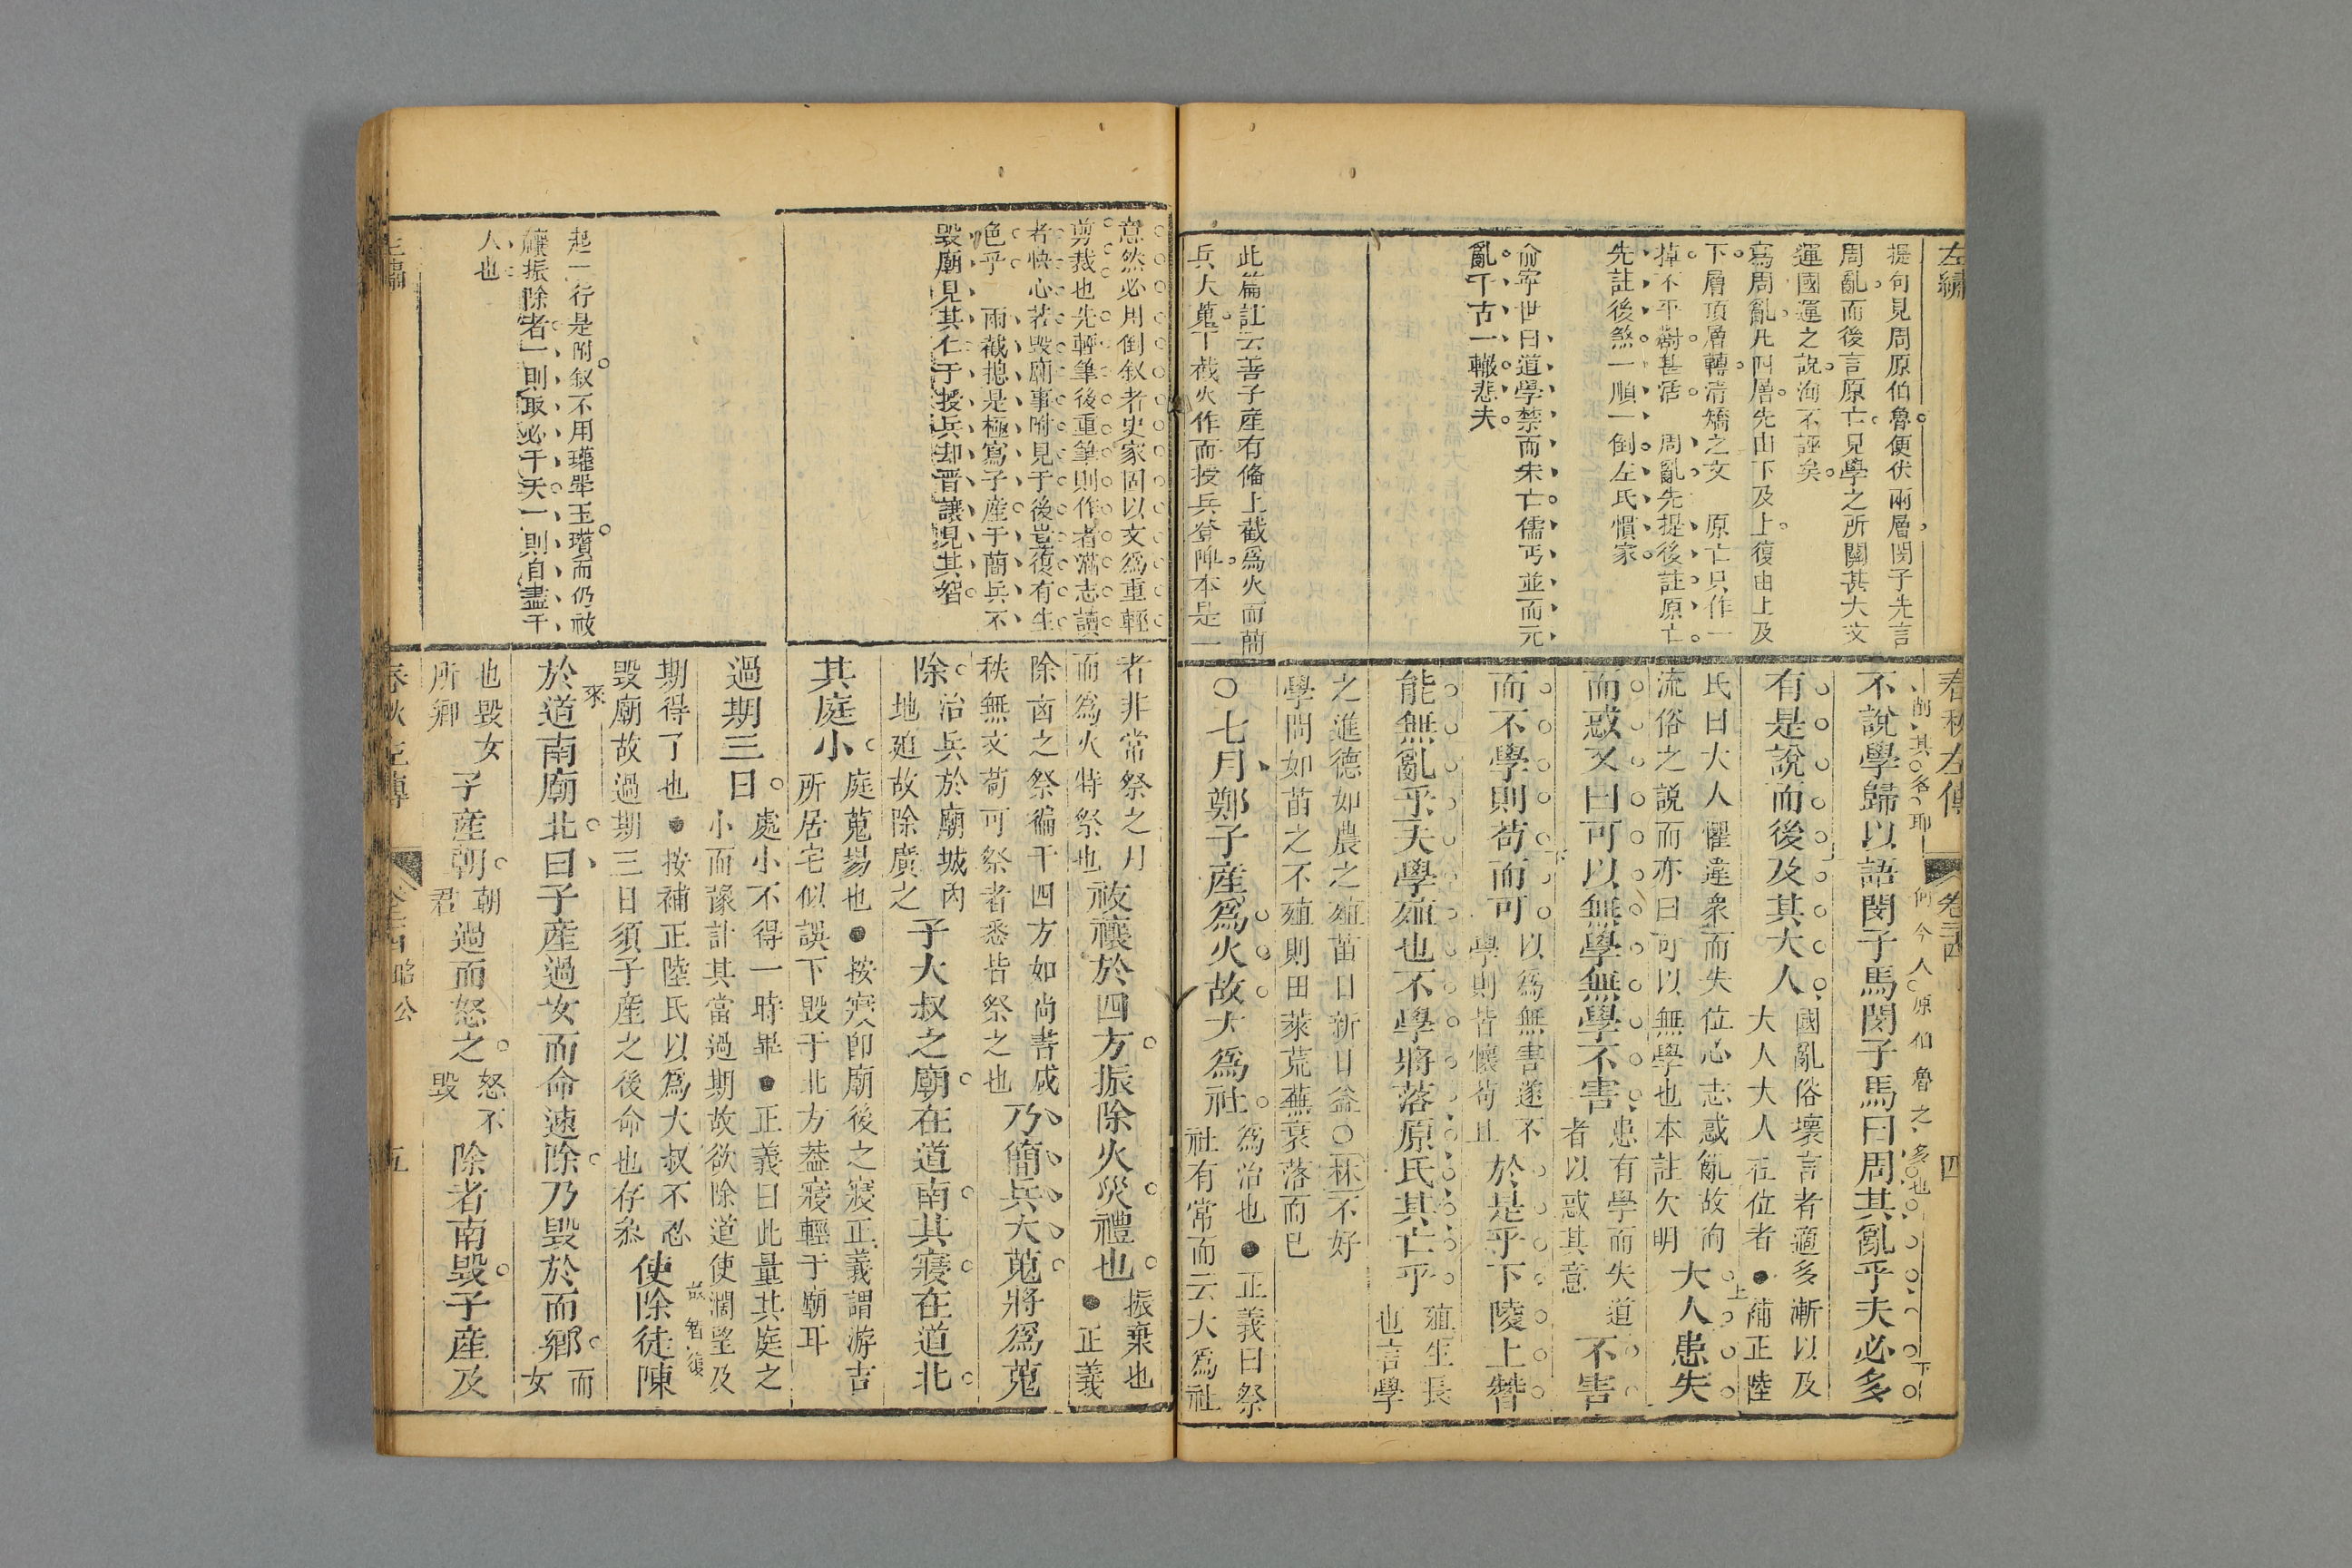 左繡
提句見周原伯魯便伏兩層閔子先言
周亂而後言原亡見學之所關甚大文
運國運之說洵不誣矣
寫周亂凡四層先由下及上復由上及
下層頂層轉清矯之文　原亡只作一
掉不平對甚活　周亂先提後註原亡
先註後煞一順一倒左氏慣家
俞寧世曰道學禁而朱亡儒丐並而元
亂千古一轍悲夫
此篇註云善子產有備上截為火而簡
兵大蒐下截火作而授兵登陴本是一
春秋左傳
卷二十四
四
何今人原伯魯之多也
不說學歸以語閔子馬閔子馬曰周其亂乎夫必多
有是說而後及其大人
國亂俗壞言者適多漸以及
大人大人在位者●補正陸
氏曰大人懼違衆而失位心志惑亂故徇
流俗之說而亦曰可以無學也本註欠明
大人患失
而惑又曰可以無學無學不害
患有學而失道
者以惑其意
不害
而不學則苟而可
以為無害遂不
學則皆懷苟且
於是乎下陵上替
能無亂乎夫學殖也不學將落原氏其亡乎
殖生長
也言學
之進德如農之殖苗日新日益○林不好
學問如苗之不殖則田萊荒蕪衰落而已
○七月鄭子產為火故大為社
為治也●正義曰祭
社有常而云大為社
意然必用倒敘者史家固以文為重輕
剪裁也先輕筆後重筆則作者滿志讀
者快心若毀廟事附見于後豈復有生
色乎　兩截摠是極寫子產于簡兵不
毀廟見其仁于授兵却晋讓見其智
起一行是附敘不用瓘斝玉瓚而仍祓
禳振除者一則取必于天一則自盡于
人也
者非常祭之月
而為火特祭也
祓禳於四方振除火災禮也
振棄也
●正義
除凶之祭徧于四方如尚書咸
秩無文苟可祭者悉皆祭之也
乃簡兵大蒐將為蒐
除
治兵於廟城內
地廹故除廣之
子大叔之廟在道南其寢在道北
其庭小
庭蒐塲也●按寢即廟後之寢正義謂游吉
所居宅似誤下毀于北方葢寢輕于廟耳
過期三日
處小不得一時畢●正義曰此量其庭之
小而豫計其當過期故欲除道使濶望及
期得了也●按補正陸氏以為大叔不忍
毀廟故過期三日須子產之後命也存叅
使除徒陳
於道南廟北曰子產過女而命速除乃毀於而鄉
而
女
也毀女
所鄉
子產朝
朝
君
過而怒之
怒不
毀
除者南毀子產及
左繡
春秋左傳
昭公
五